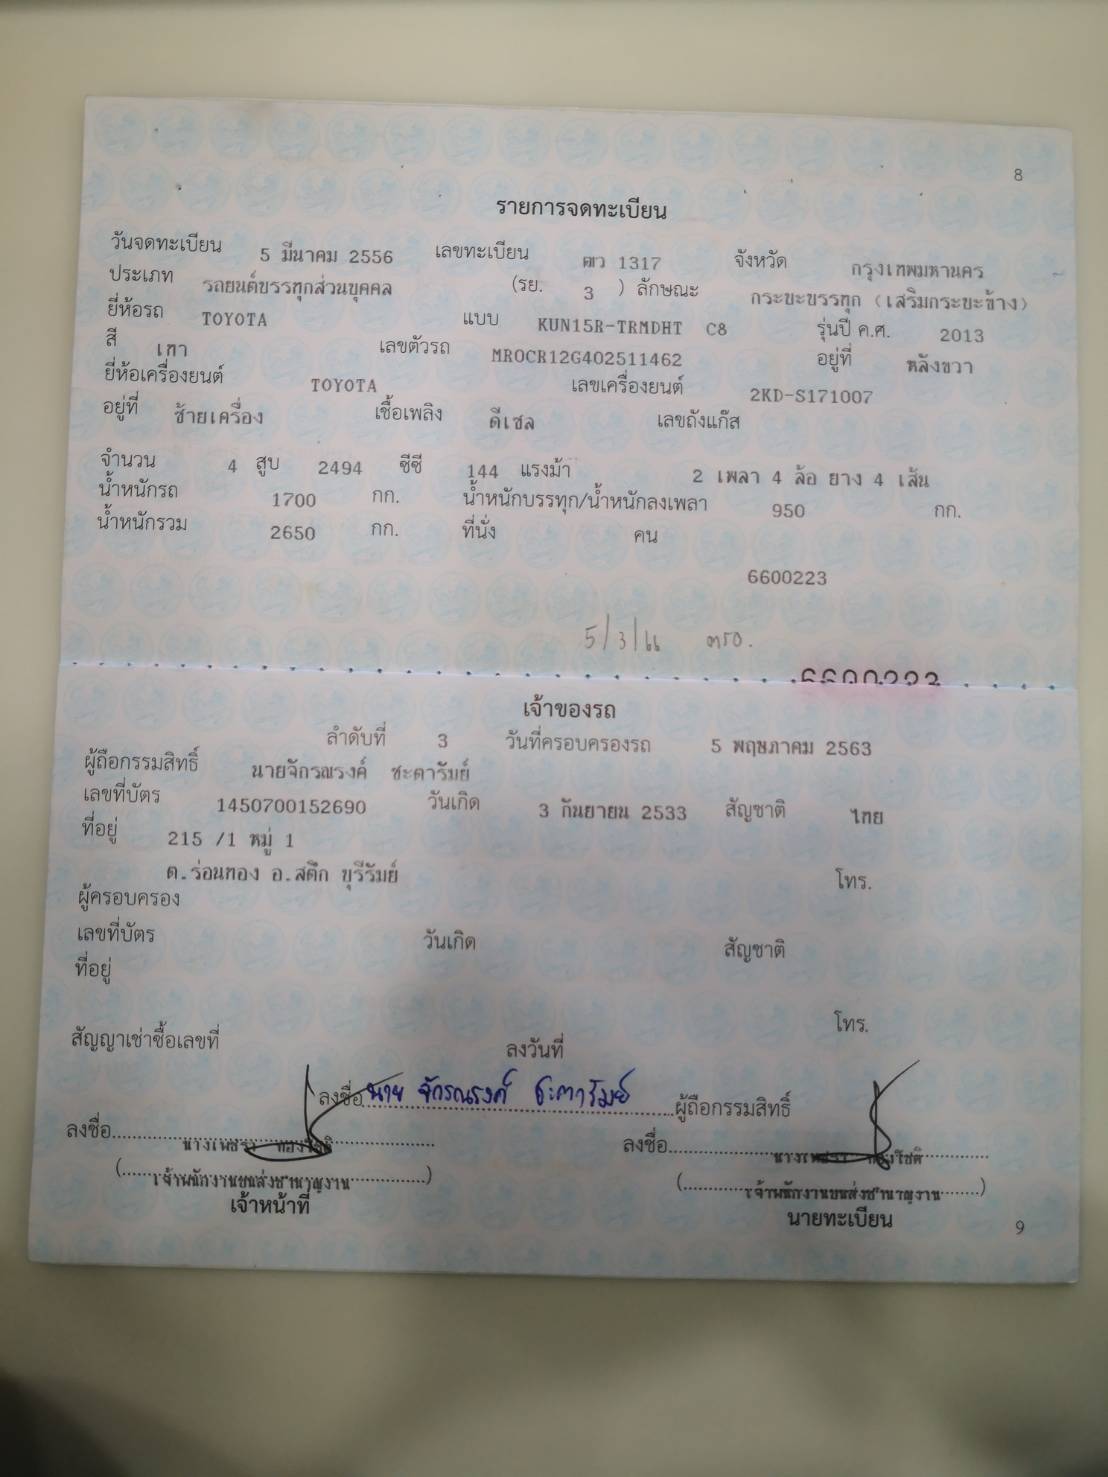 8
รายการจดทะเบียน
วันจดทะเบียน 5 มีนาคม 2556 เลขทะเบียน ฒว 1317 จังหวัด กรุงเทพมหานคร
ประเภท รถยนต์บรรทุกส่วนบุคคล (รย. 3 ) ลักษณะ กระบะบรรทุก (เสริมกระบะข้าง)
ยี่ห้อรถ TOYOTA แบบ KUN15R-TRMDHT C8 รุ่นปี ค.ศ. 2013
สี เทา เลขตัวรถ MROCR12G402511462 อยู่ที่ หลังขวา
ยี่ห้อเครื่องยนต์ TOYOTA เลขเครื่องยนต์ 2KD-S171007
อยู่ที่ ซ้ายเครื่อง เชื้อเพลิง ดีเซล เลขถังแก๊ส
จำนวน 4 สูบ 2494 ซีซี 144 แรงม้า 2 เพลา 4 ล้อ ยาง 4 เส้น
น้ำหนักรถ 1700 กก. น้ำหนักบรรทุก/น้ำหนักลงเพลา 950 กก.
น้ำหนักรวม 2650 กก. ที่นั่ง คน
6600223
5/3/66 ตรอ.
6600223
เจ้าของรถ
ลำดับที่ 3 วันที่ครอบครองรถ 5 พฤษภาคม 2563
ผู้ถือกรรมสิทธิ์ นายจักรณรงค์ ชะตารัมย์
เลขที่บัตร 1450700152690 วันเกิด 3 กันยายน 2533 สัญชาติ ไทย
ที่อยู่ 215 /1 หมู่ 1
ต.ร่อนทอง อ.สตึก บุรีรัมย์ โทร.
ผู้ครอบครอง
เลขที่บัตร วันเกิด สัญชาติ
ที่อยู่
โทร.
สัญญาเช่าซื้อเลขที่ ลงวันที่
ลงชื่อ นาย จักรณรงค์ ชะตารัมย์ ผู้ถือกรรมสิทธิ์
ลงชื่อ ทองโชติ ลงชื่อ ทองโชติ
(เจ้าพนักงานขนส่งชำนาญงาน) (เจ้าพนักงานขนส่งชำนาญงาน)
เจ้าหน้าที่ นายทะเบียน
9